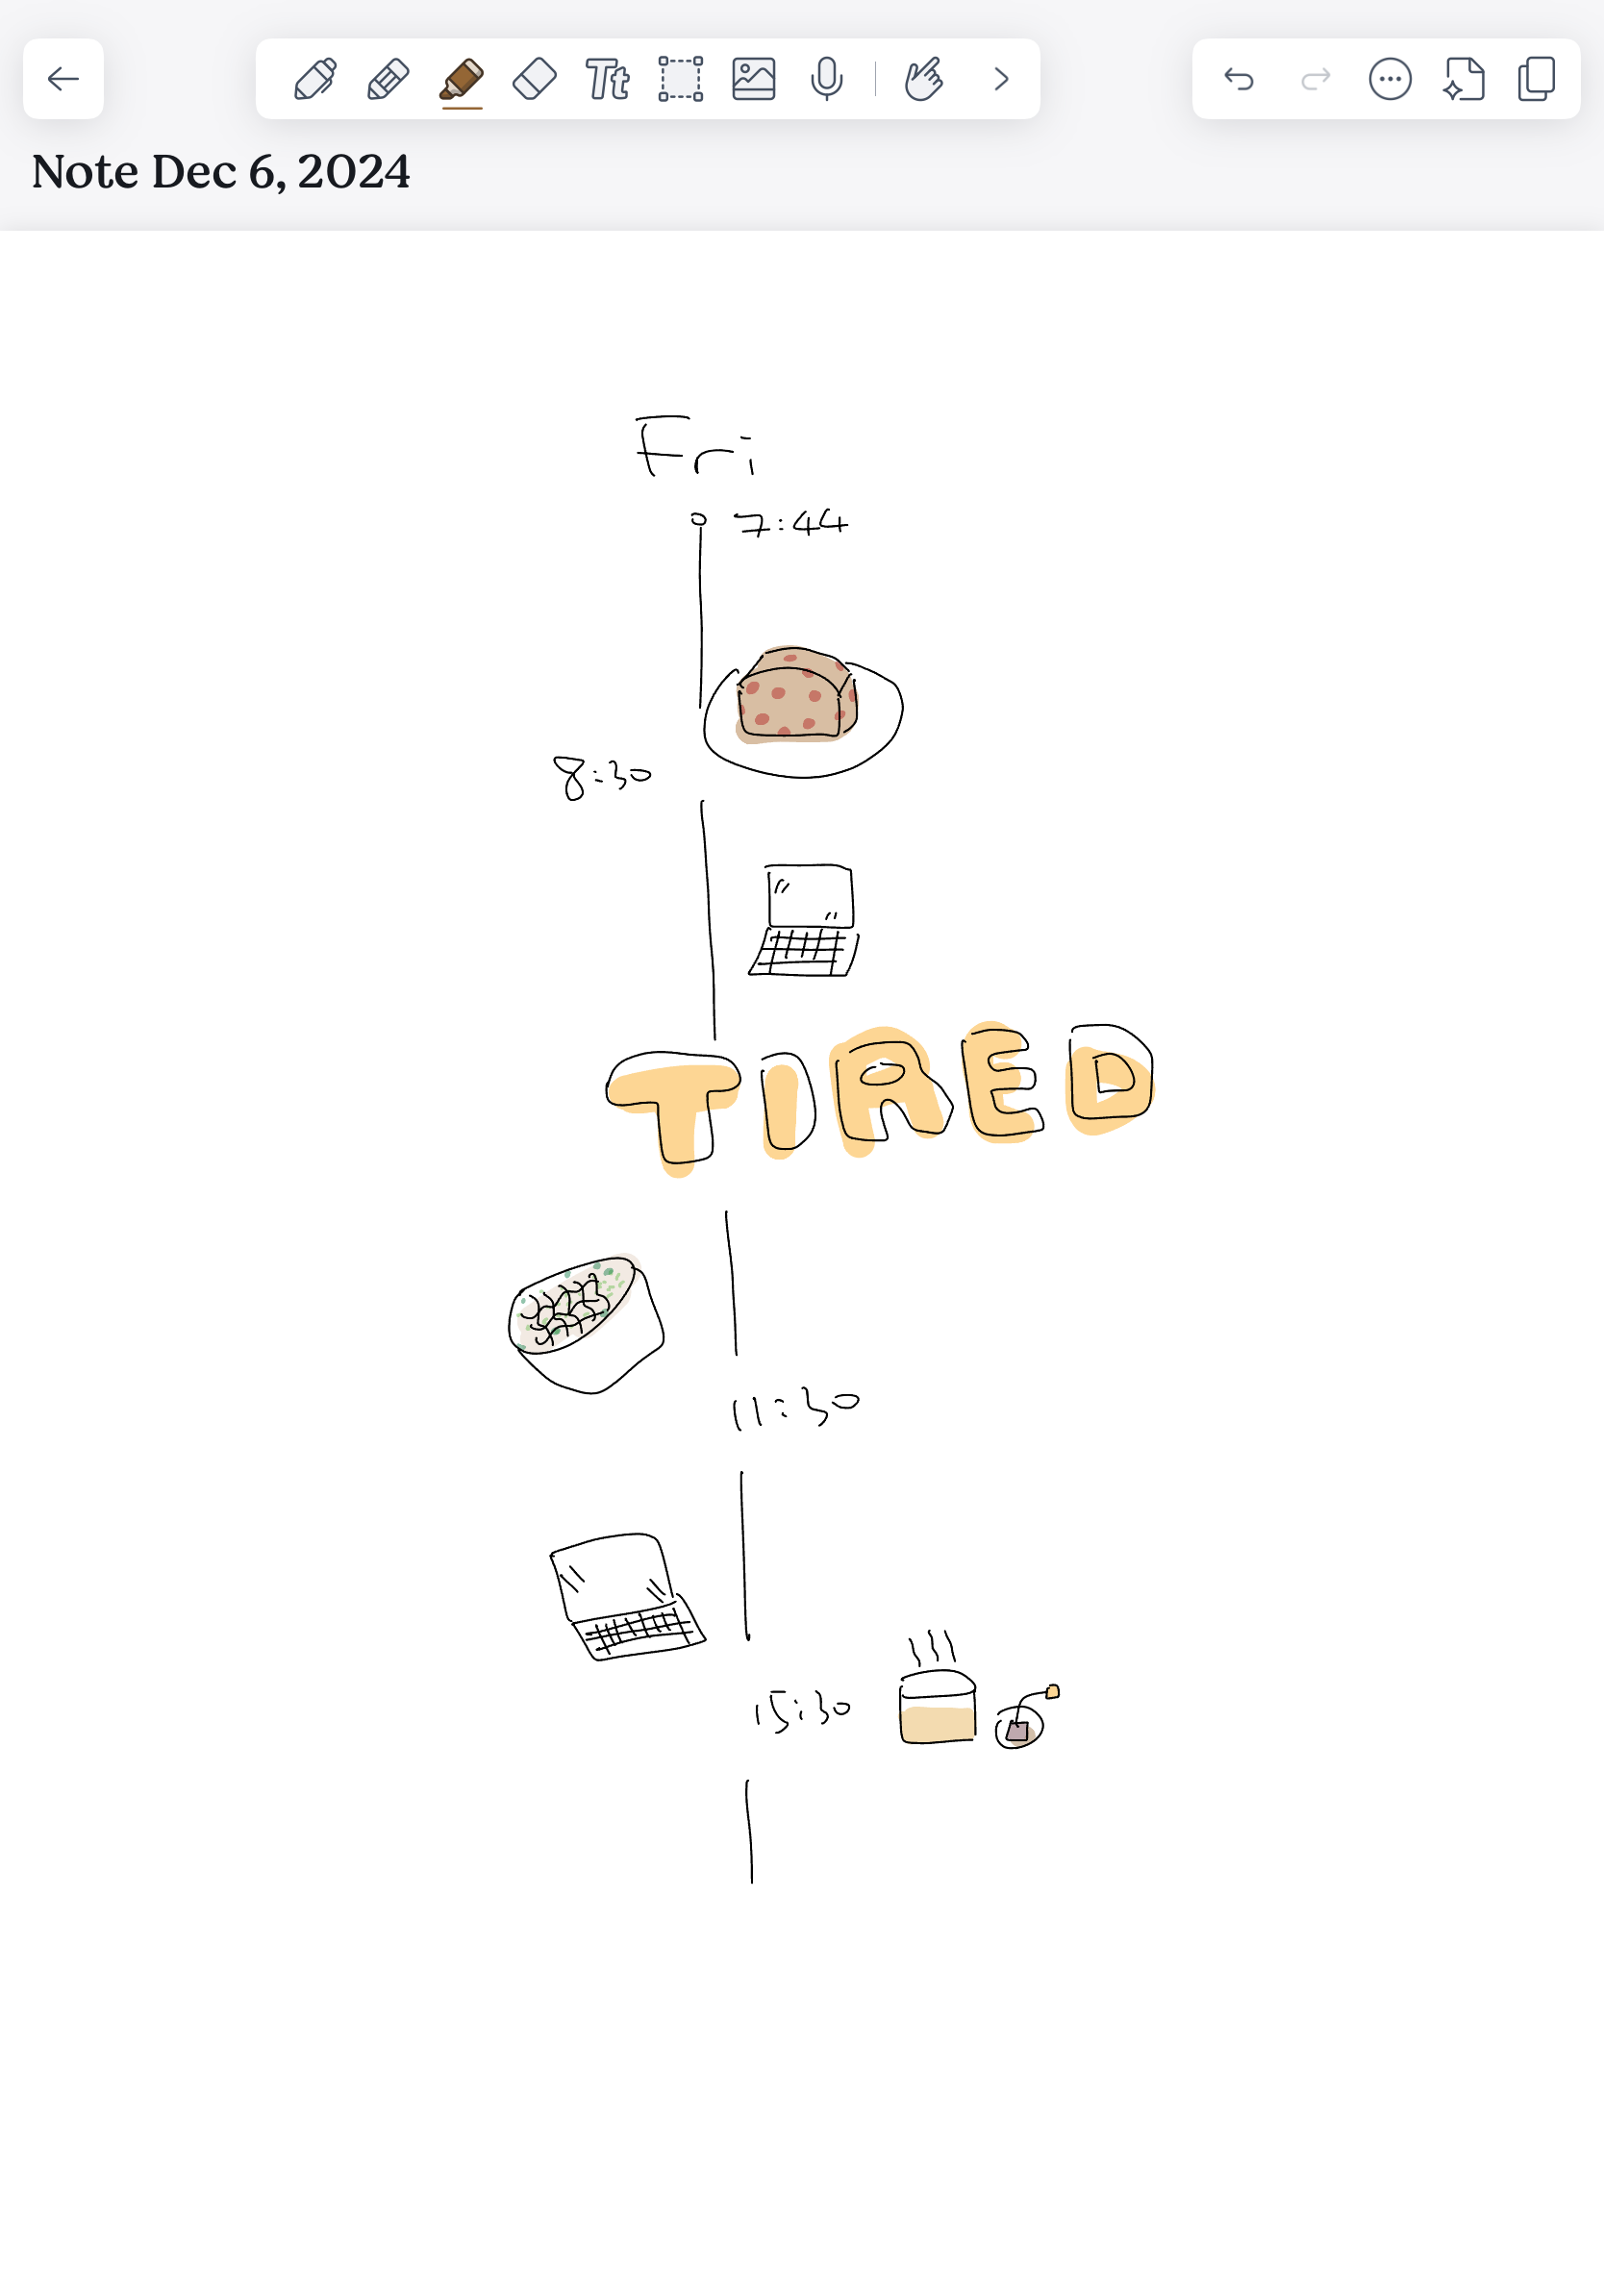 Tt
Note Dec 6, 2024
Fri
7:44
8:30
TIRED
11:30
15:30